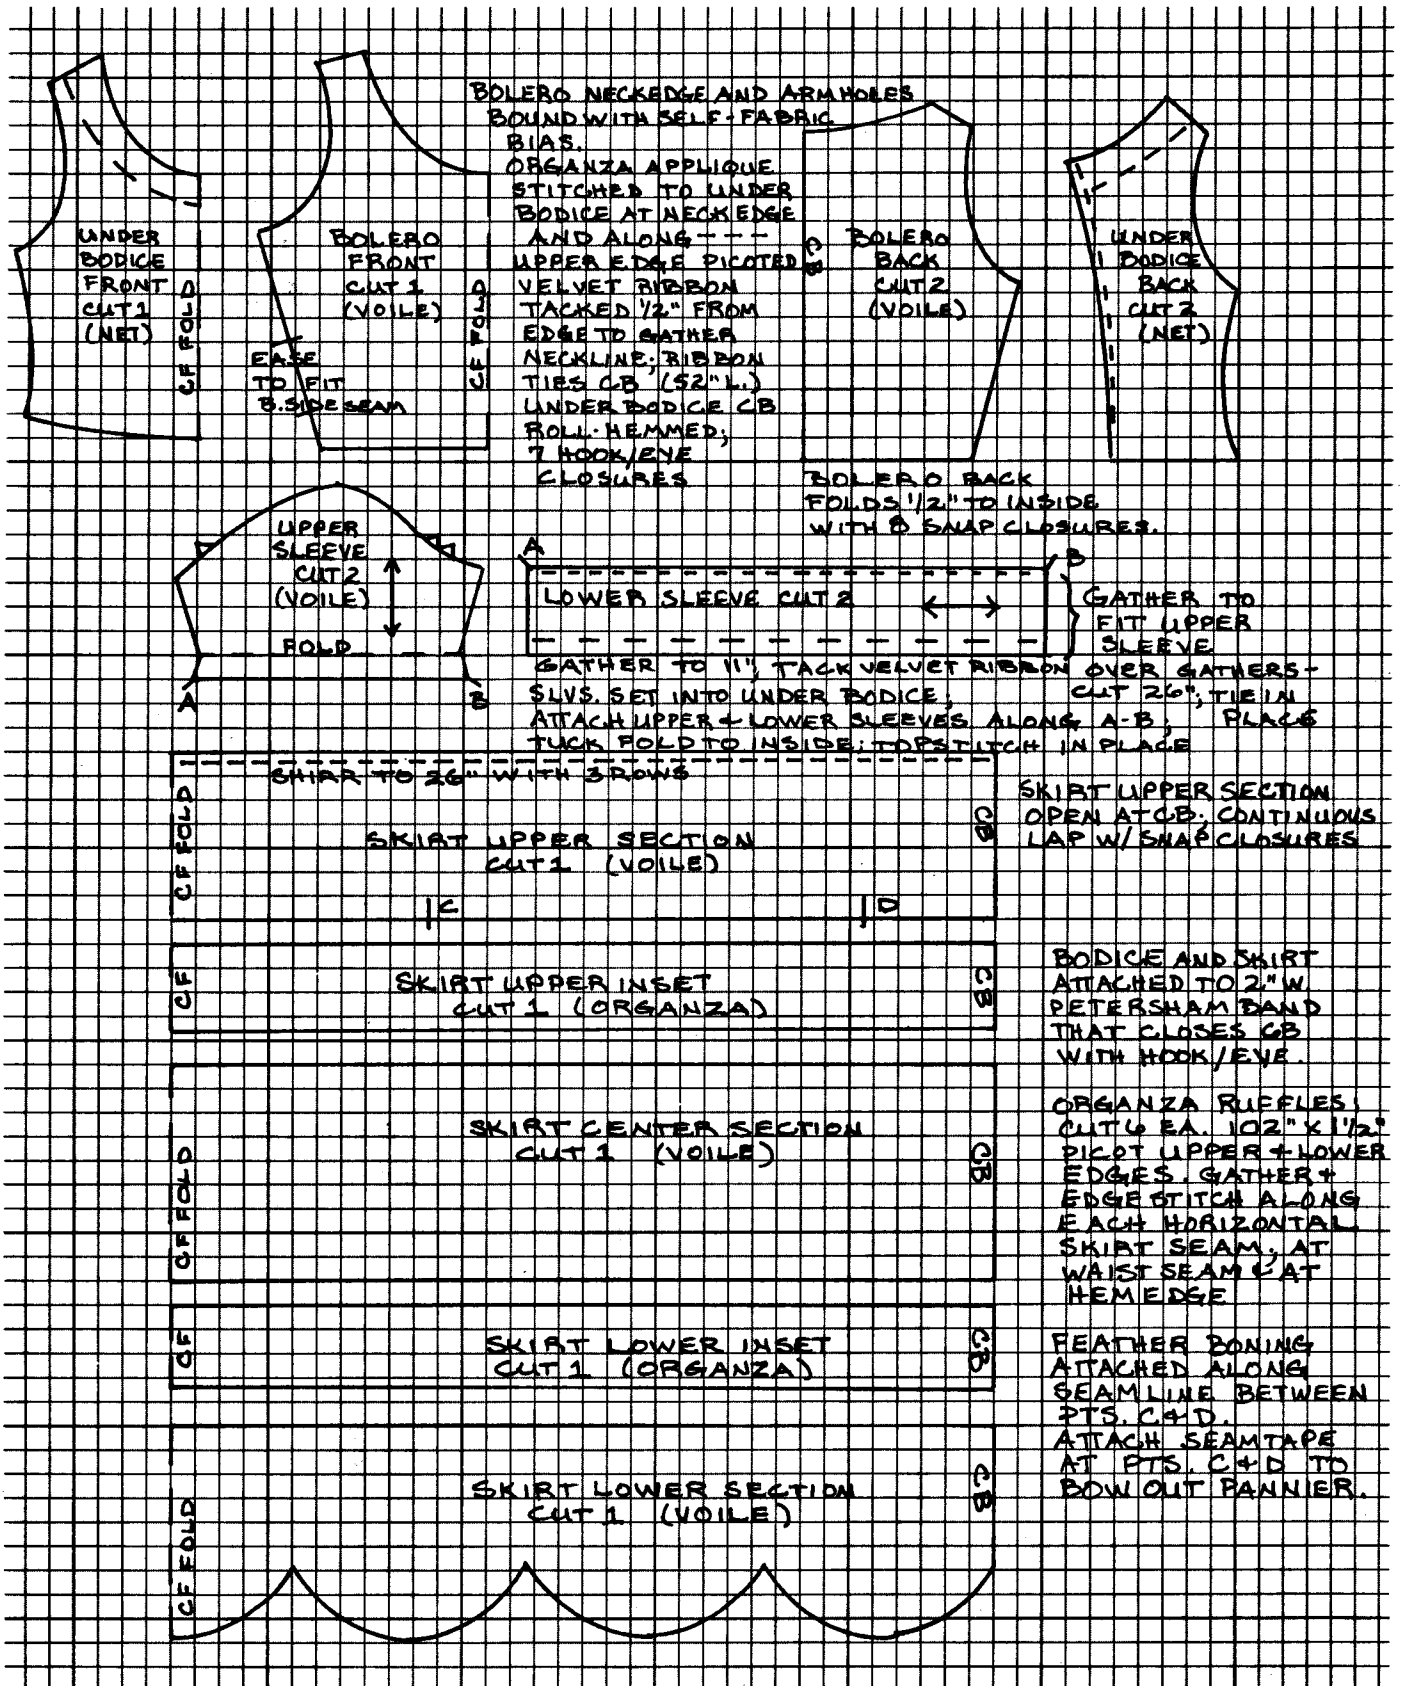 BOLERO NECKEDGE AND ARMHOLES
BOUND WITH SELF-FABRIC
BIAS.
ORGANZA APPLIQUE
STITCHED TO UNDER
BODICE AT NECK EDGE
AND ALONG ---
UPPER EDGE PICOTED
VELVET RIBBON
TACKED 1/2" FROM
EDGE TO GATHER
NECKLINE; RIBBON
TIES CB (52" L.)
UNDER BODICE CB
ROLL-HEMMED;
7 HOOK/EYE
CLOSURES
UNDER
BODICE
FRONT
CUT 1
(NET)
CF FOLD
BOLERO
FRONT
CUT 1
(VOILE)
CF FOLD
EASE
TO FIT
B. SIDE SEAM
CB
BOLERO
BACK
CUT 2
(VOILE)
UNDER
BODICE
BACK
CUT 2
(NET)
BOLERO BACK
FOLDS 1/2" TO INSIDE
WITH 8 SNAP CLOSURES.
UPPER
SLEEVE
CUT 2
(VOILE)
FOLD
A
B
A
B
LOWER SLEEVE CUT 2
GATHER TO
FIT UPPER
SLEEVE
GATHER TO 11", TACK VELVET RIBBON OVER GATHERS-
CUT 26"; TIE IN
PLACE
SLVS. SET INTO UNDER BODICE;
ATTACH UPPER + LOWER SLEEVES ALONG A-B;
TUCK FOLD TO INSIDE; TOPSTITCH IN PLACE
SHIRR TO 26" WITH 3 ROWS
CF FOLD
SKIRT UPPER SECTION
CUT 1 (VOILE)
CB
C
D
SKIRT UPPER SECTION
OPEN AT CB; CONTINUOUS
LAP W/ SNAP CLOSURES
CF
SKIRT UPPER INSET
CUT 1 (ORGANZA)
CB
BODICE AND SKIRT
ATTACHED TO 2" W
PETERSHAM BAND
THAT CLOSES CB
WITH HOOK/EYE.
CF FOLD
SKIRT CENTER SECTION
CUT 1 (VOILE)
CB
ORGANZA RUFFLES;
CUT 6 EA. 102" X 1 1/2"
PICOT UPPER + LOWER
EDGES. GATHER +
EDGESTITCH ALONG
EACH HORIZONTAL
SKIRT SEAM, AT
WAIST SEAM & AT
HEM EDGE
CF
SKIRT LOWER INSET
CUT 1 (ORGANZA)
CB
FEATHER BONING
ATTACHED ALONG
SEAMLINE BETWEEN
PTS. C & D.
ATTACH SEAM TAPE
AT PTS. C & D TO
BOW OUT PANNIER.
CF FOLD
SKIRT LOWER SECTION
CUT 1 (VOILE)
CB